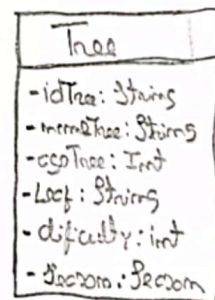 Tree
- idTree: String
- nameTree: String
- ageTree: Int
- Leaf: String
- dificulty: int
- Season: Season